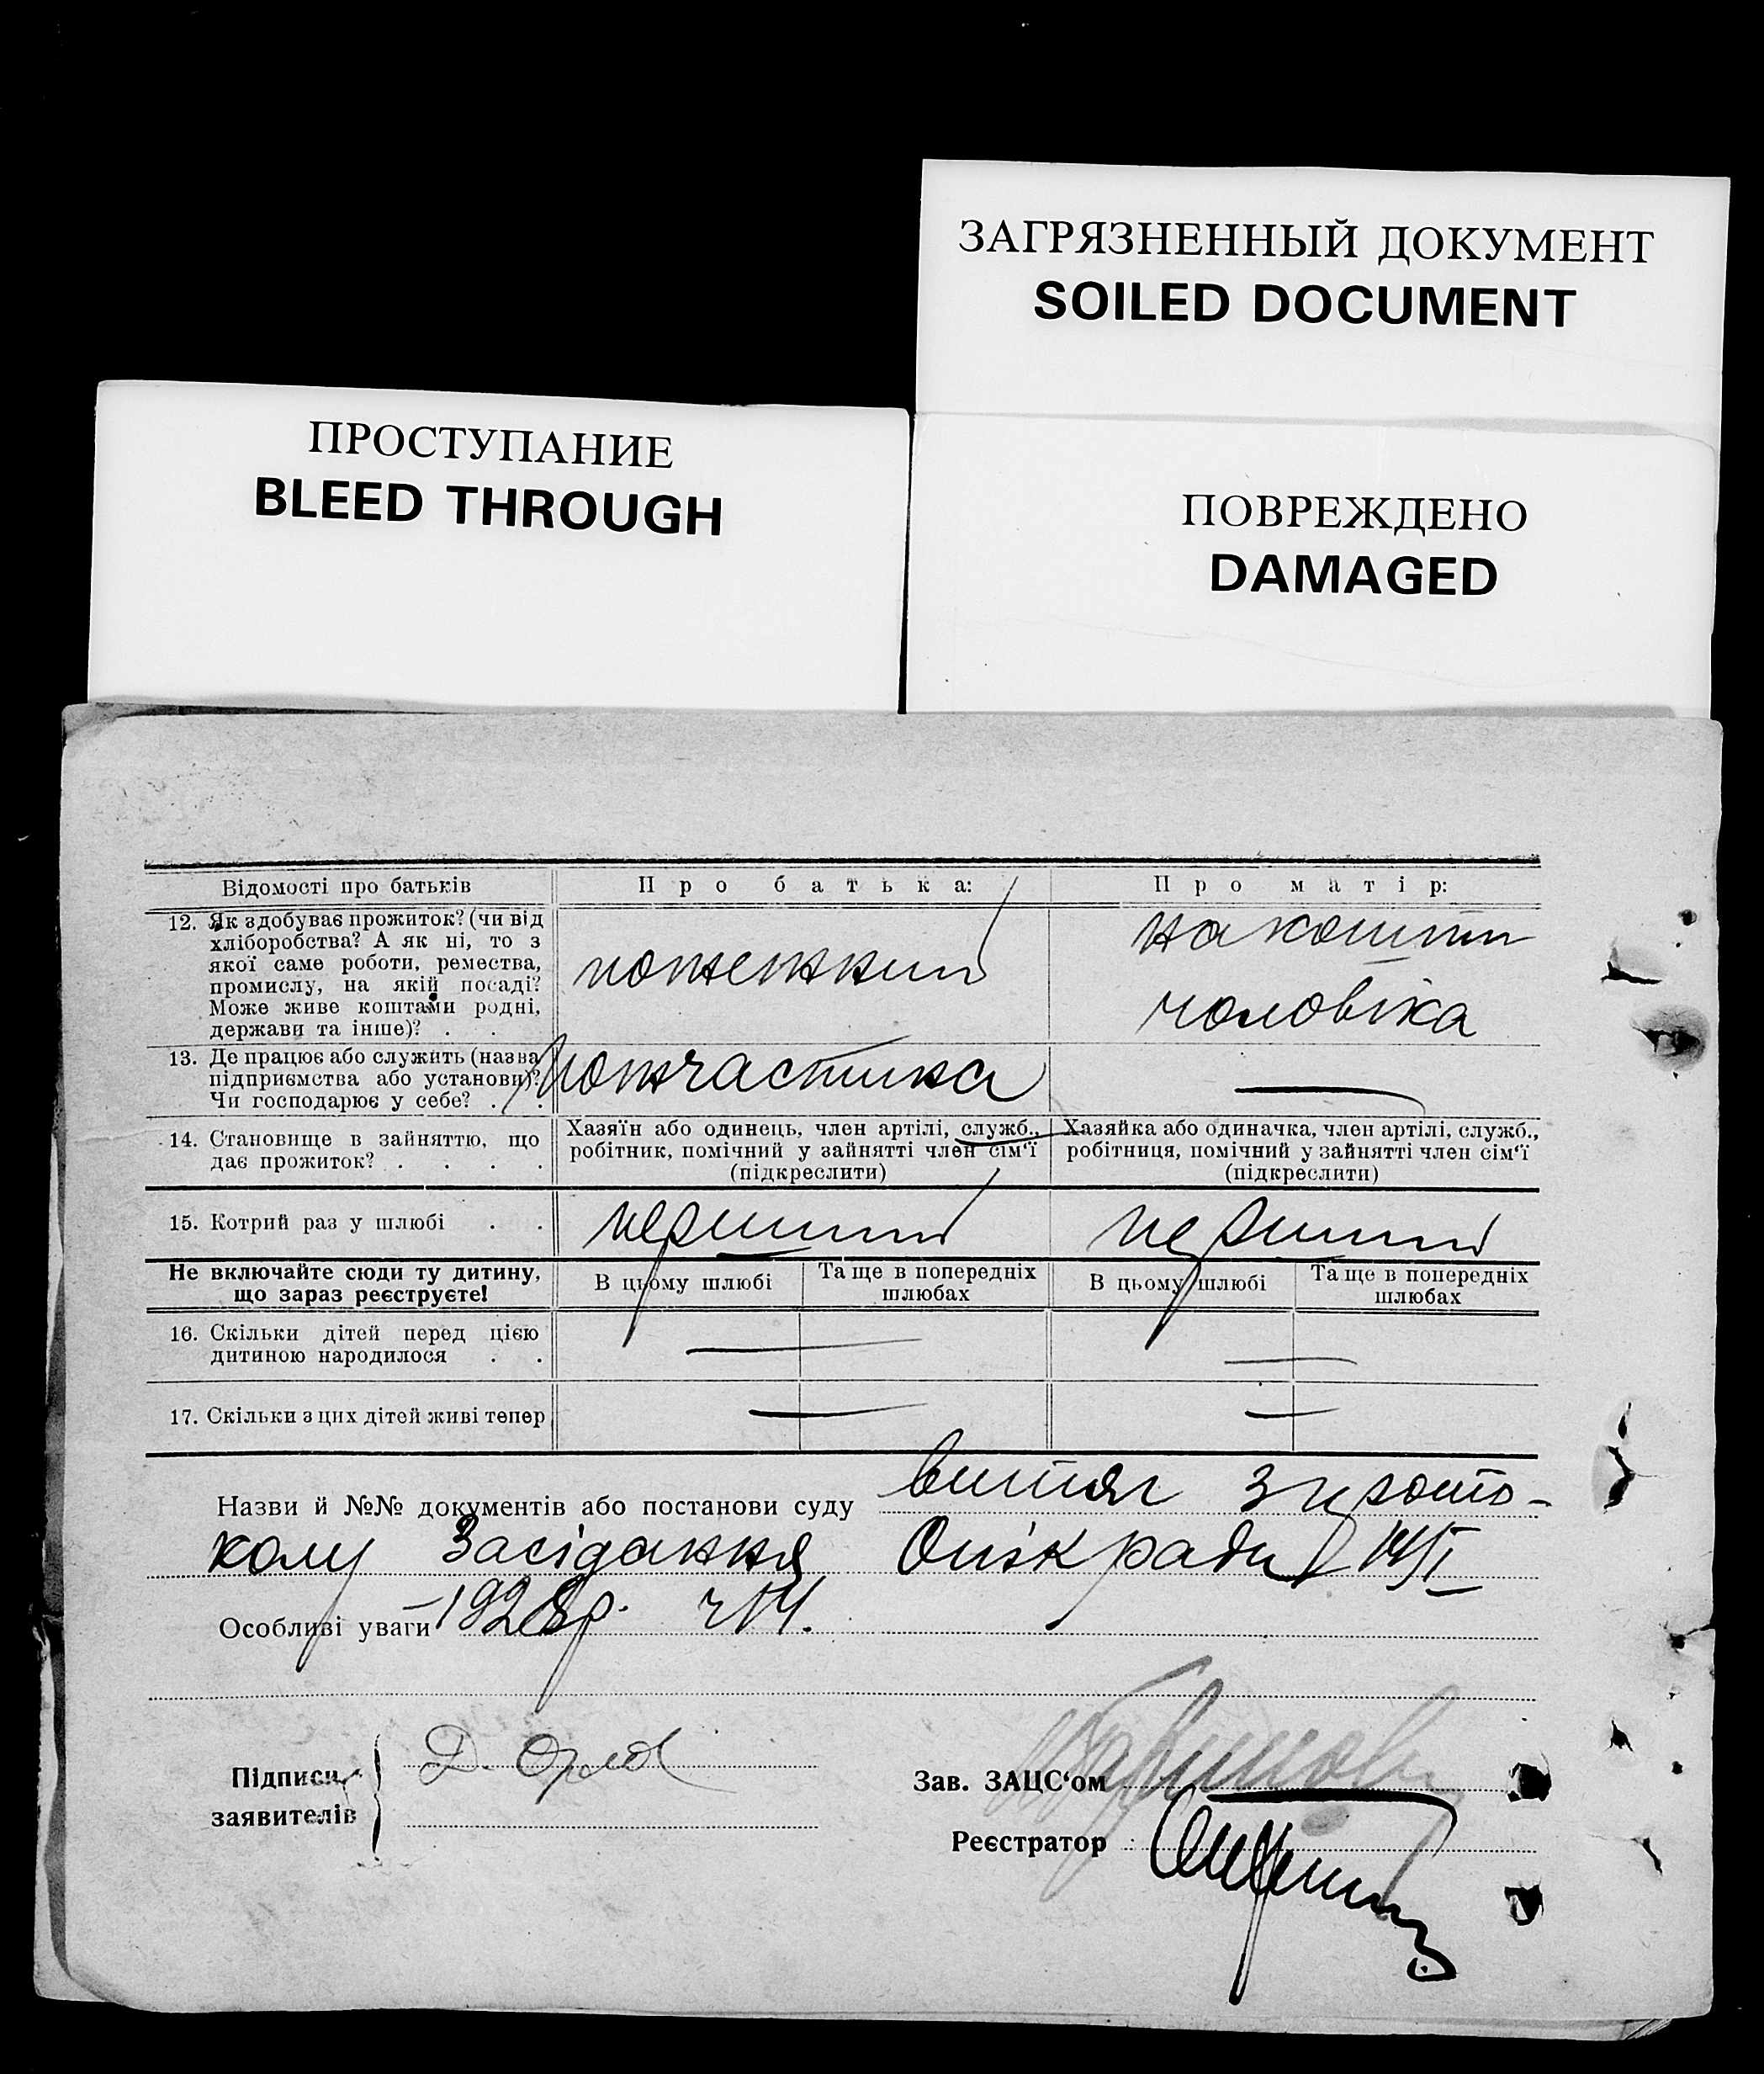 ЗАГРЯЗНЕННЫЙ ДОКУМЕНТ
SOILED DOCUMENT
ПРОСТУПАНИЕ
BLEED THROUGH
ПОВРЕЖДЕНО
DAMAGED
Відомості про батьків
Про батька:
Про матір:
12. Як здобуває прожиток? (чи від
хліборобства? А як ні, то з
якої саме роботи, ремества,
промислу, на якій посаді?
Може живе коштами родні,
держави та інше)? . . .
пожежний
на кошти
чоловіка
13. Де працює або служить (назва
підприємства або установи)?
Чи господарює у себе? . .
Пожчастина
—
14. Становище в зайняттю, що
дає прожиток? . . . .
Хазяїн або одинець, член артілі, служб.,
робітник, помічний у зайнятті член сім'ї
(підкреслити)
Хазяйка або одиначка, член артілі, служб.,
робітниця, помічний у зайнятті член сім'ї
(підкреслити)
15. Котрий раз у шлюбі . .
перший
перший
Не включайте сюди ту дитину,
що зараз реєструєте!
В цьому шлюбі
Та ще в попередніх
шлюбах
В цьому шлюбі
Та ще в попередніх
шлюбах
16. Скільки дітей перед цією
дитиною народилося . .
—
—
17. Скільки з цих дітей живі тепер
—
—
Назви й №№ документів або постанови суду витяг з прото-
колу Засідання Опікради 14/I
Особливі уваги -1928р. ч14.
Підписи
заявителів
Д. Орлов
Зав. ЗАЦС'ом
Реєстратор